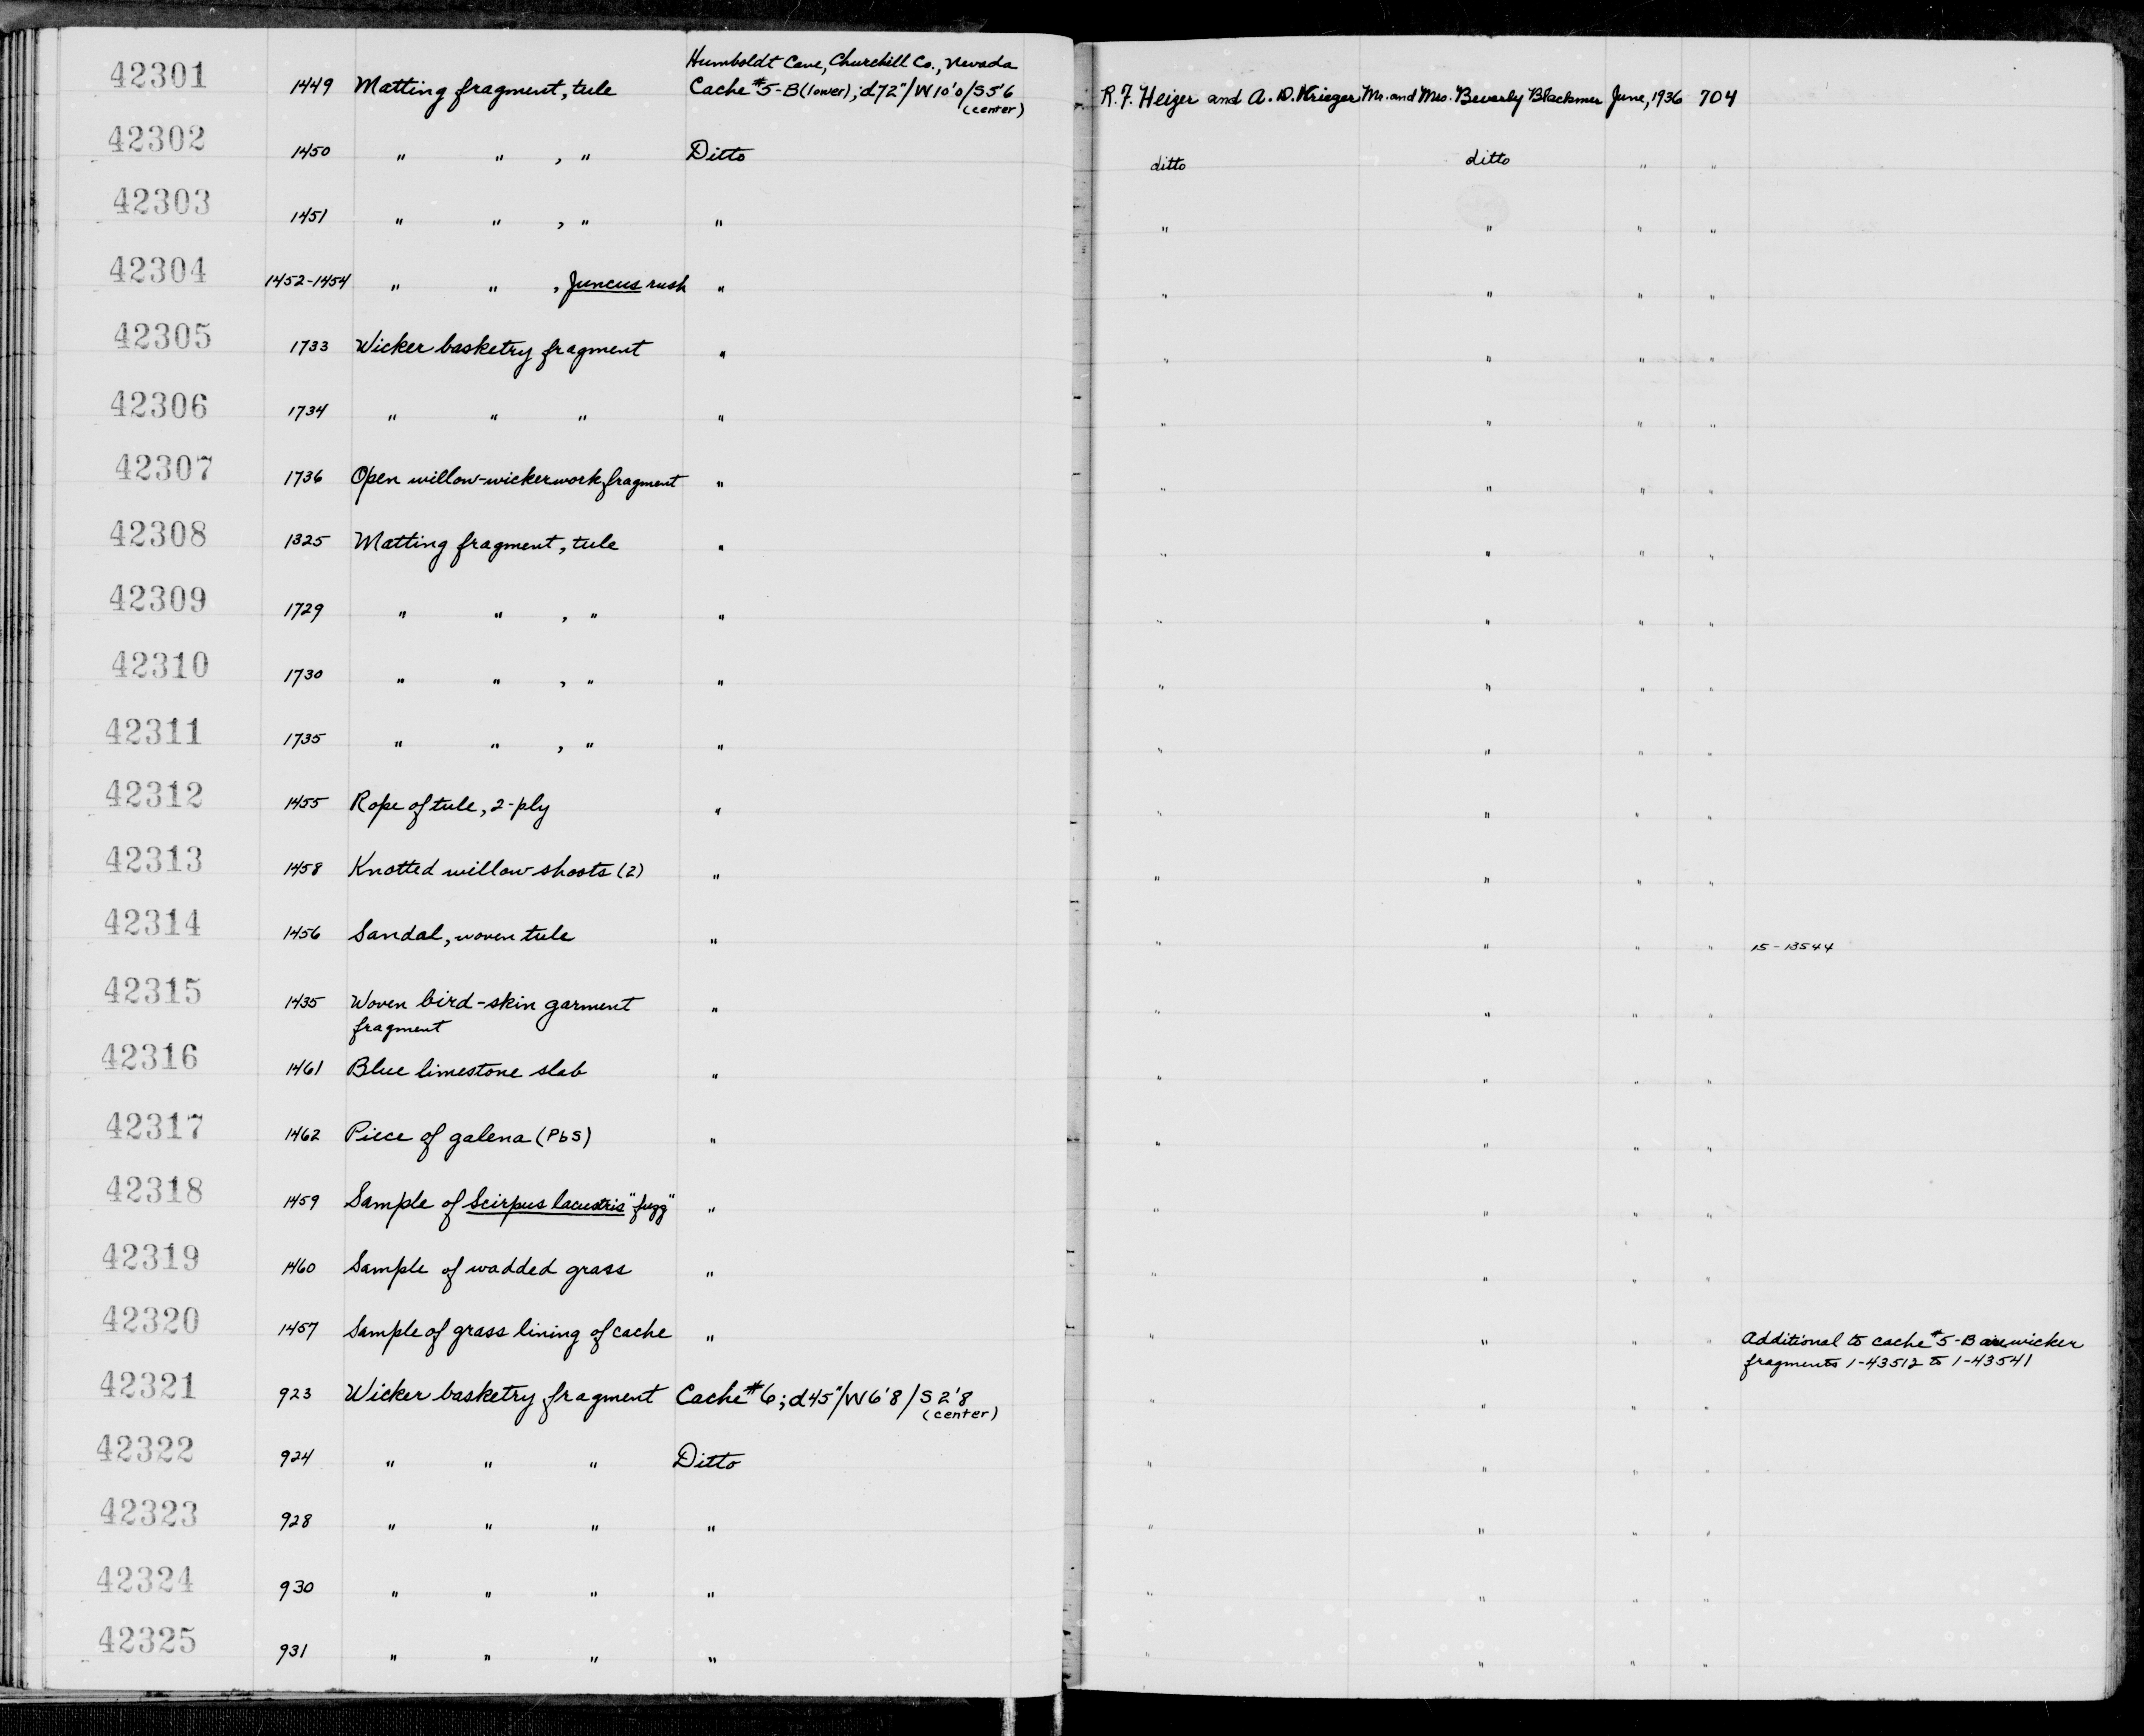 Humboldt Cave, Churchill Co., Nevada
42301 1449 Matting fragment, tule Cache #5-B (lower); d72"/W10'0/S5'6 R. F. Heizer and A. D. Krieger Mr. and Mrs. Beverly Blackmer June, 1936 704
(center)
42302 1450 " " , " Ditto ditto ditto " "
42303 1451 " " , " " " " " "
42304 1452-1454 " " , Juncus rush " " " " "
42305 1733 Wicker basketry fragment " " " " "
42306 1734 " " " " " " " "
42307 1736 Open willow-wickerwork fragment " " " " "
42308 1325 Matting fragment, tule " " " " "
42309 1729 " " , " " " " " "
42310 1730 " " , " " " " " "
42311 1735 " " , " " " " " "
42312 1455 Rope of tule, 2-ply " " " " "
42313 1458 Knotted willow shoots (2) " " " " "
42314 1456 Sandal, woven tule " " " " " 15-13544
42315 1435 Woven bird-skin garment " " " " "
fragment
42316 1461 Blue limestone slab " " " " "
42317 1462 Piece of galena (PbS) " " " " "
42318 1459 Sample of Scirpus lacustris "fugg" " " " " "
42319 1460 Sample of wadded grass " " " " "
42320 1457 Sample of grass lining of cache " " " " " Additional to cache #5-B are wicker
fragments 1-43512 to 1-43541
42321 923 Wicker basketry fragment Cache #6; d45"/W6'8/S2'8 " " " "
(center)
42322 924 " " " Ditto " " " "
42323 928 " " " " " " " "
42324 930 " " " " " " " "
42325 931 " " " " " " " "